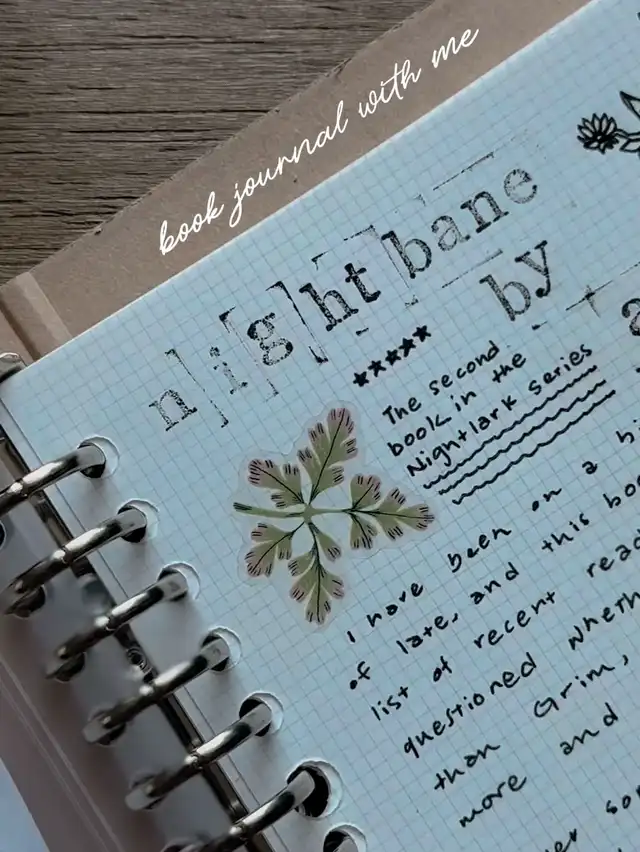 book journal with me
nightbane
by a
★★★★★
The second
book in the
Nightlark series
I have been on a bi
of late, and this boo
list of recent read
questioned wheth
than Grim,
more and
er so